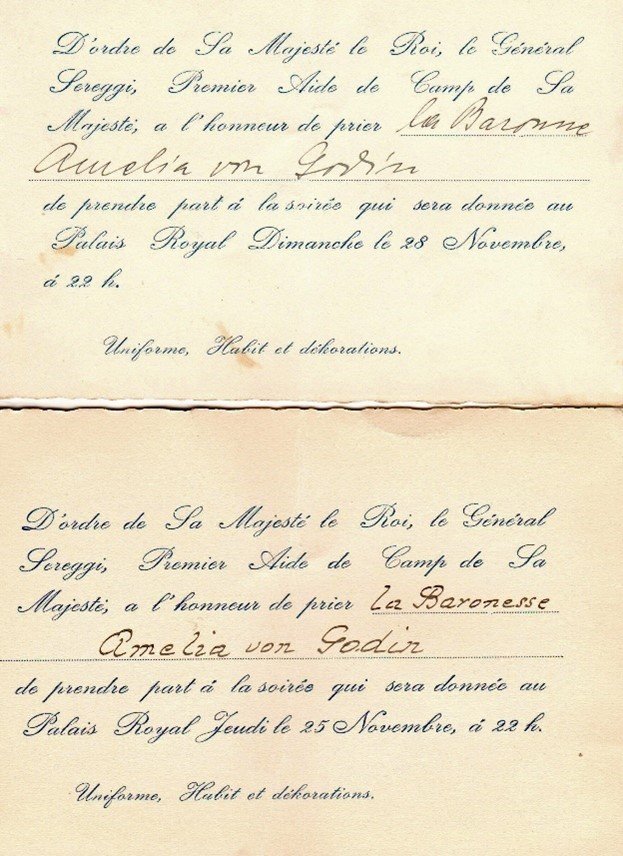 D'ordre de Sa Majesté le Roi, le Général
Sereggi, Premier Aide de Camp de Sa
Majesté, a l'honneur de prier la Baronne
Amelia von Godin
de prendre part á la soirée qui sera donnée au
Palais Royal Dimanche le 28 Novembre,
á 22 h.
Uniforme, Habit et dékorations.
D'ordre de Sa Majesté le Roi, le Général
Sereggi, Premier Aide de Camp de Sa
Majesté, a l'honneur de prier la Baronesse
Amelia von Godin
de prendre part á la soirée qui sera donnée au
Palais Royal Jeudi le 25 Novembre, á 22 h.
Uniforme, Habit et dékorations.